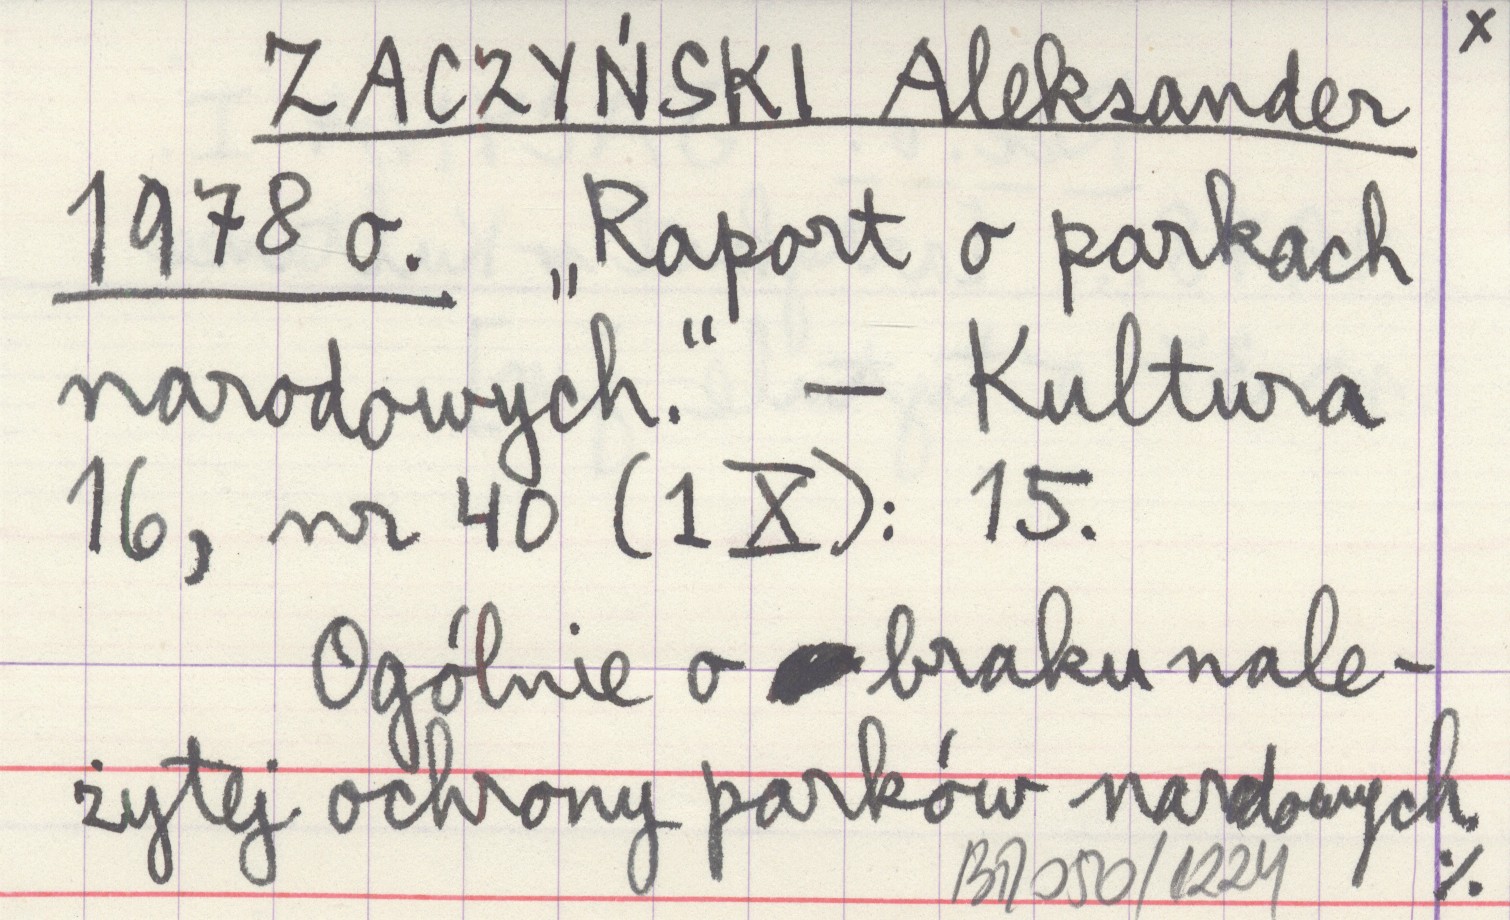 x
ZACZYŃSKI Aleksander
1978 o. „Raport o parkach
narodowych.“ — Kultura
16, nr 40 (1 X): 15.
Ogólnie o braku nale-
żytej ochrony parków nardowych
BP/050/1224 ./.